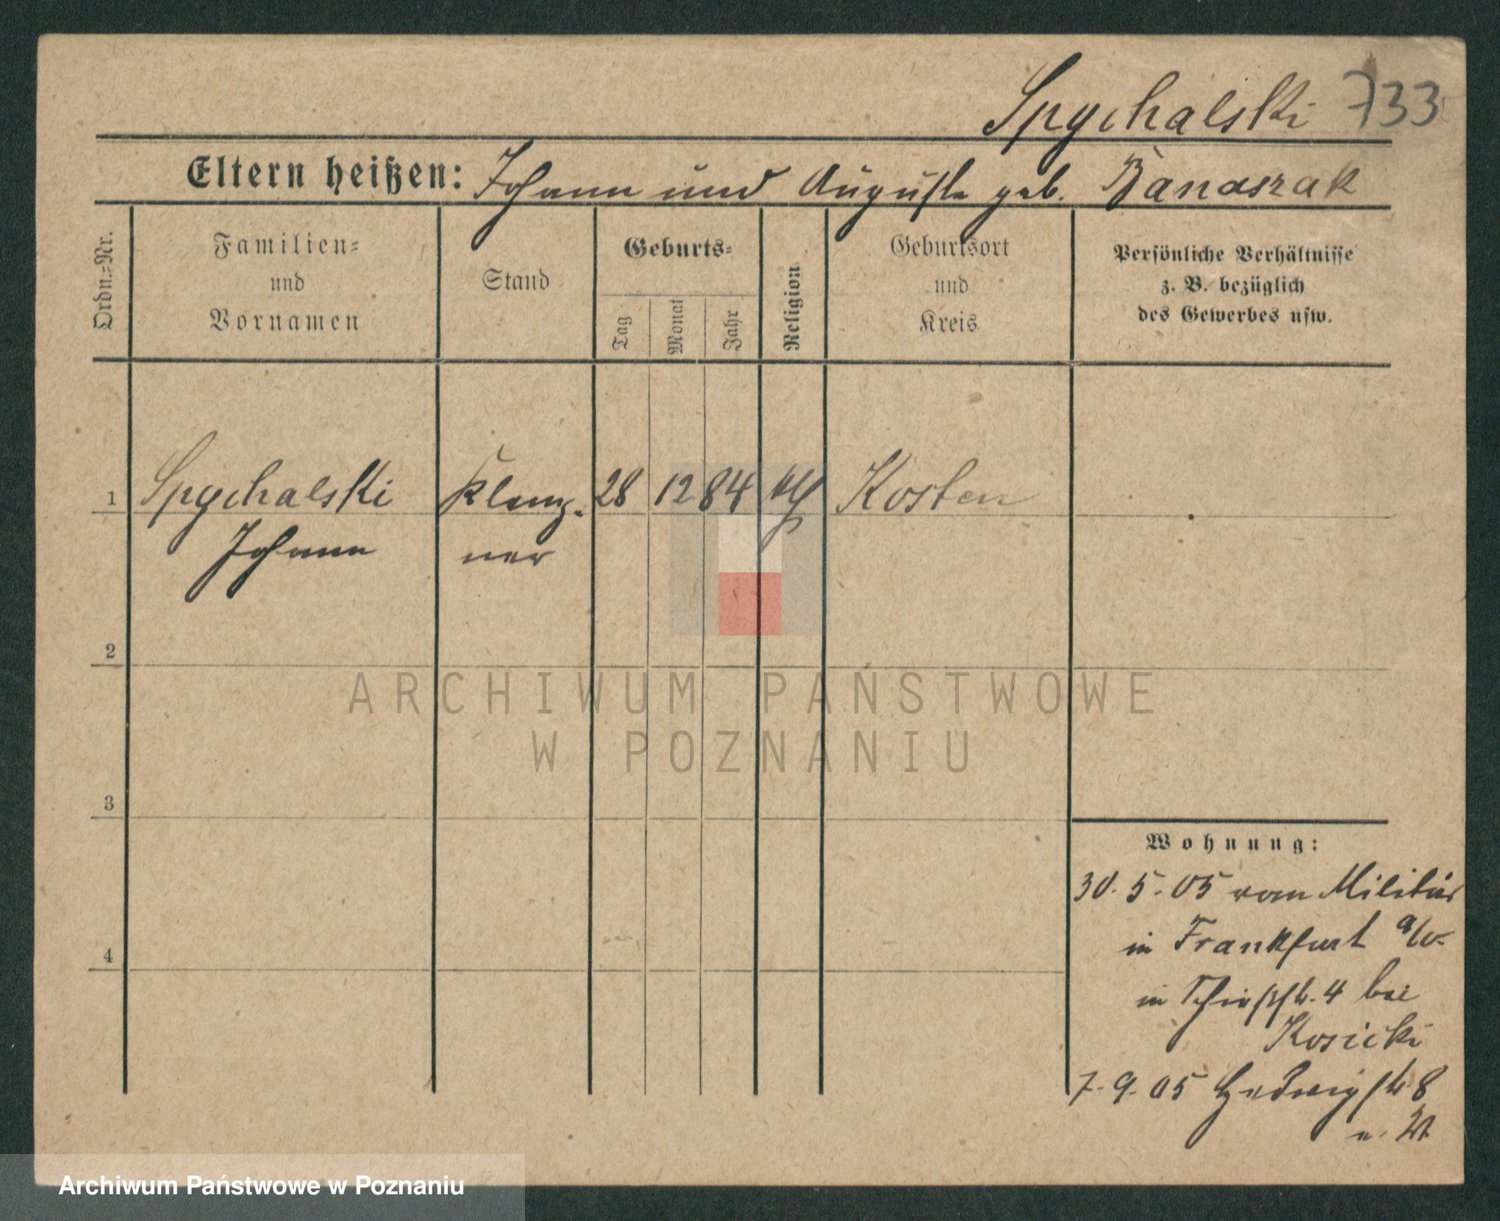 Spychalski 733
Eltern heißen: Johann und Auguste geb. Banaszak
Ordn.=Nr.
Familien=
und
Vornamen
Stand
Geburts=
Tag
Monat
Jahr
Religion
Geburtsort
und
Kreis
Persönliche Verhältnisse
z. B. bezüglich
des Gewerbes usw.
1 Spychalski Klemp- 28 12 84 Kosten
Johann ner
2
ARCHIWUM PAŃSTWOWE
W POZNANIU
3
4
Wohnung:
30. 5. 05 vom Militär
in Frankfurt a/O.
in 4 bei
Kosicki
7. 9. 05 Hedwigstr 8
Archiwum Państwowe w Poznaniu